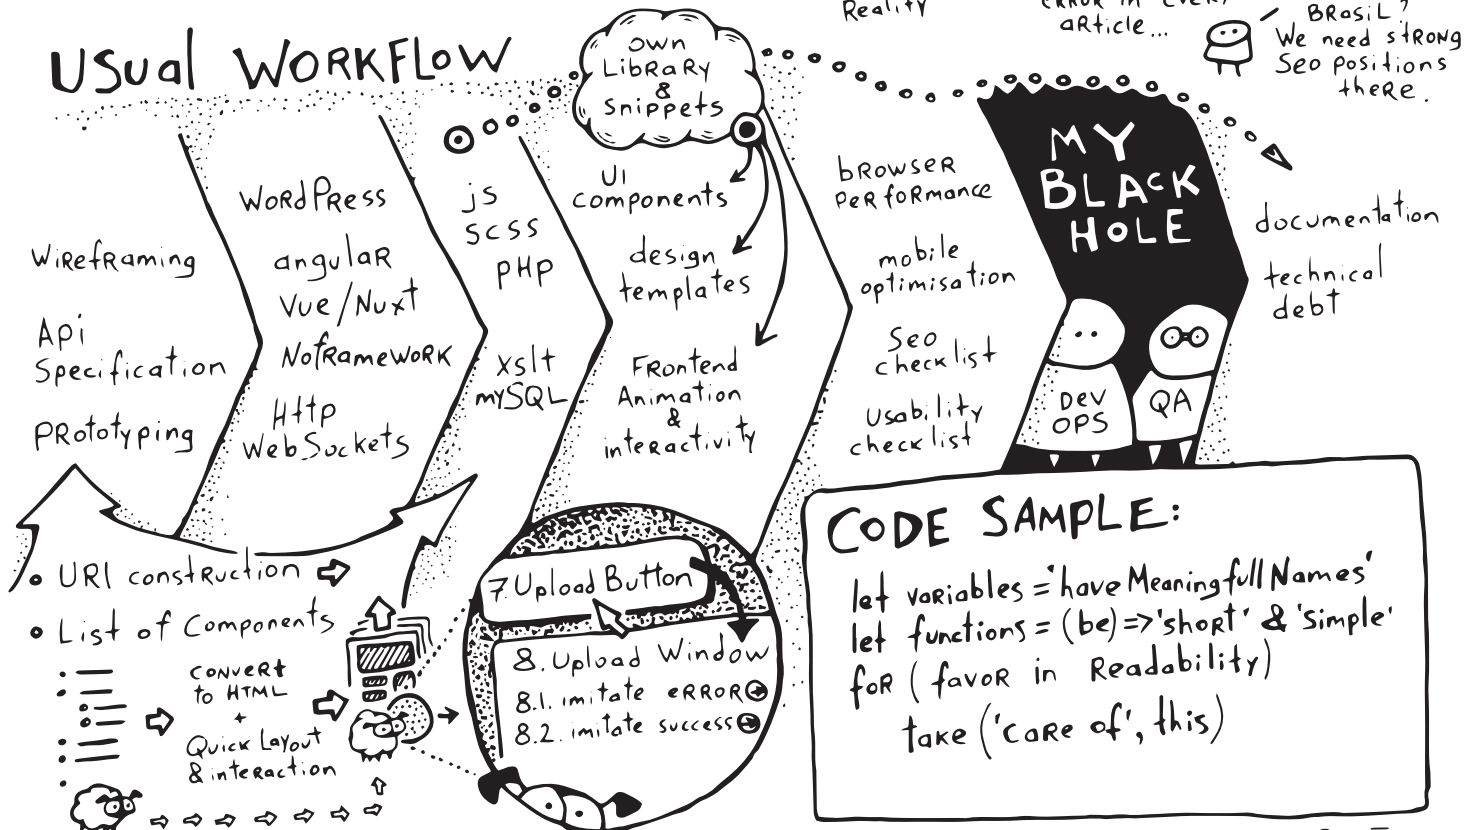 Reality
article...
Brasil?
We need strong
Seo positions
there.
Usual Workflow
own
Library
&
Snippets
Wireframing
Api
Specification
Prototyping
WordPress
angular
Vue/Nuxt
Noframework
Http
WebSockets
js
scss
PHP
xslt
mySQL
UI
components
design
templates
Frontend
Animation
&
interactivity
browser
performance
mobile
optimisation
Seo
checklist
Usability
checklist
MY
BLACK
HOLE
Dev
OPS
QA
documentation
technical
debt
URI construction
List of Components
convert
to HTML
+
Quick Layout
& interaction
7 Upload Button
8. Upload Window
8.1. imitate error
8.2. imitate success
CODE SAMPLE:
let variables = 'have MeaningfullNames'
let functions = (be) => 'short' & 'simple'
for (favor in Readability)
take ('care of', this)